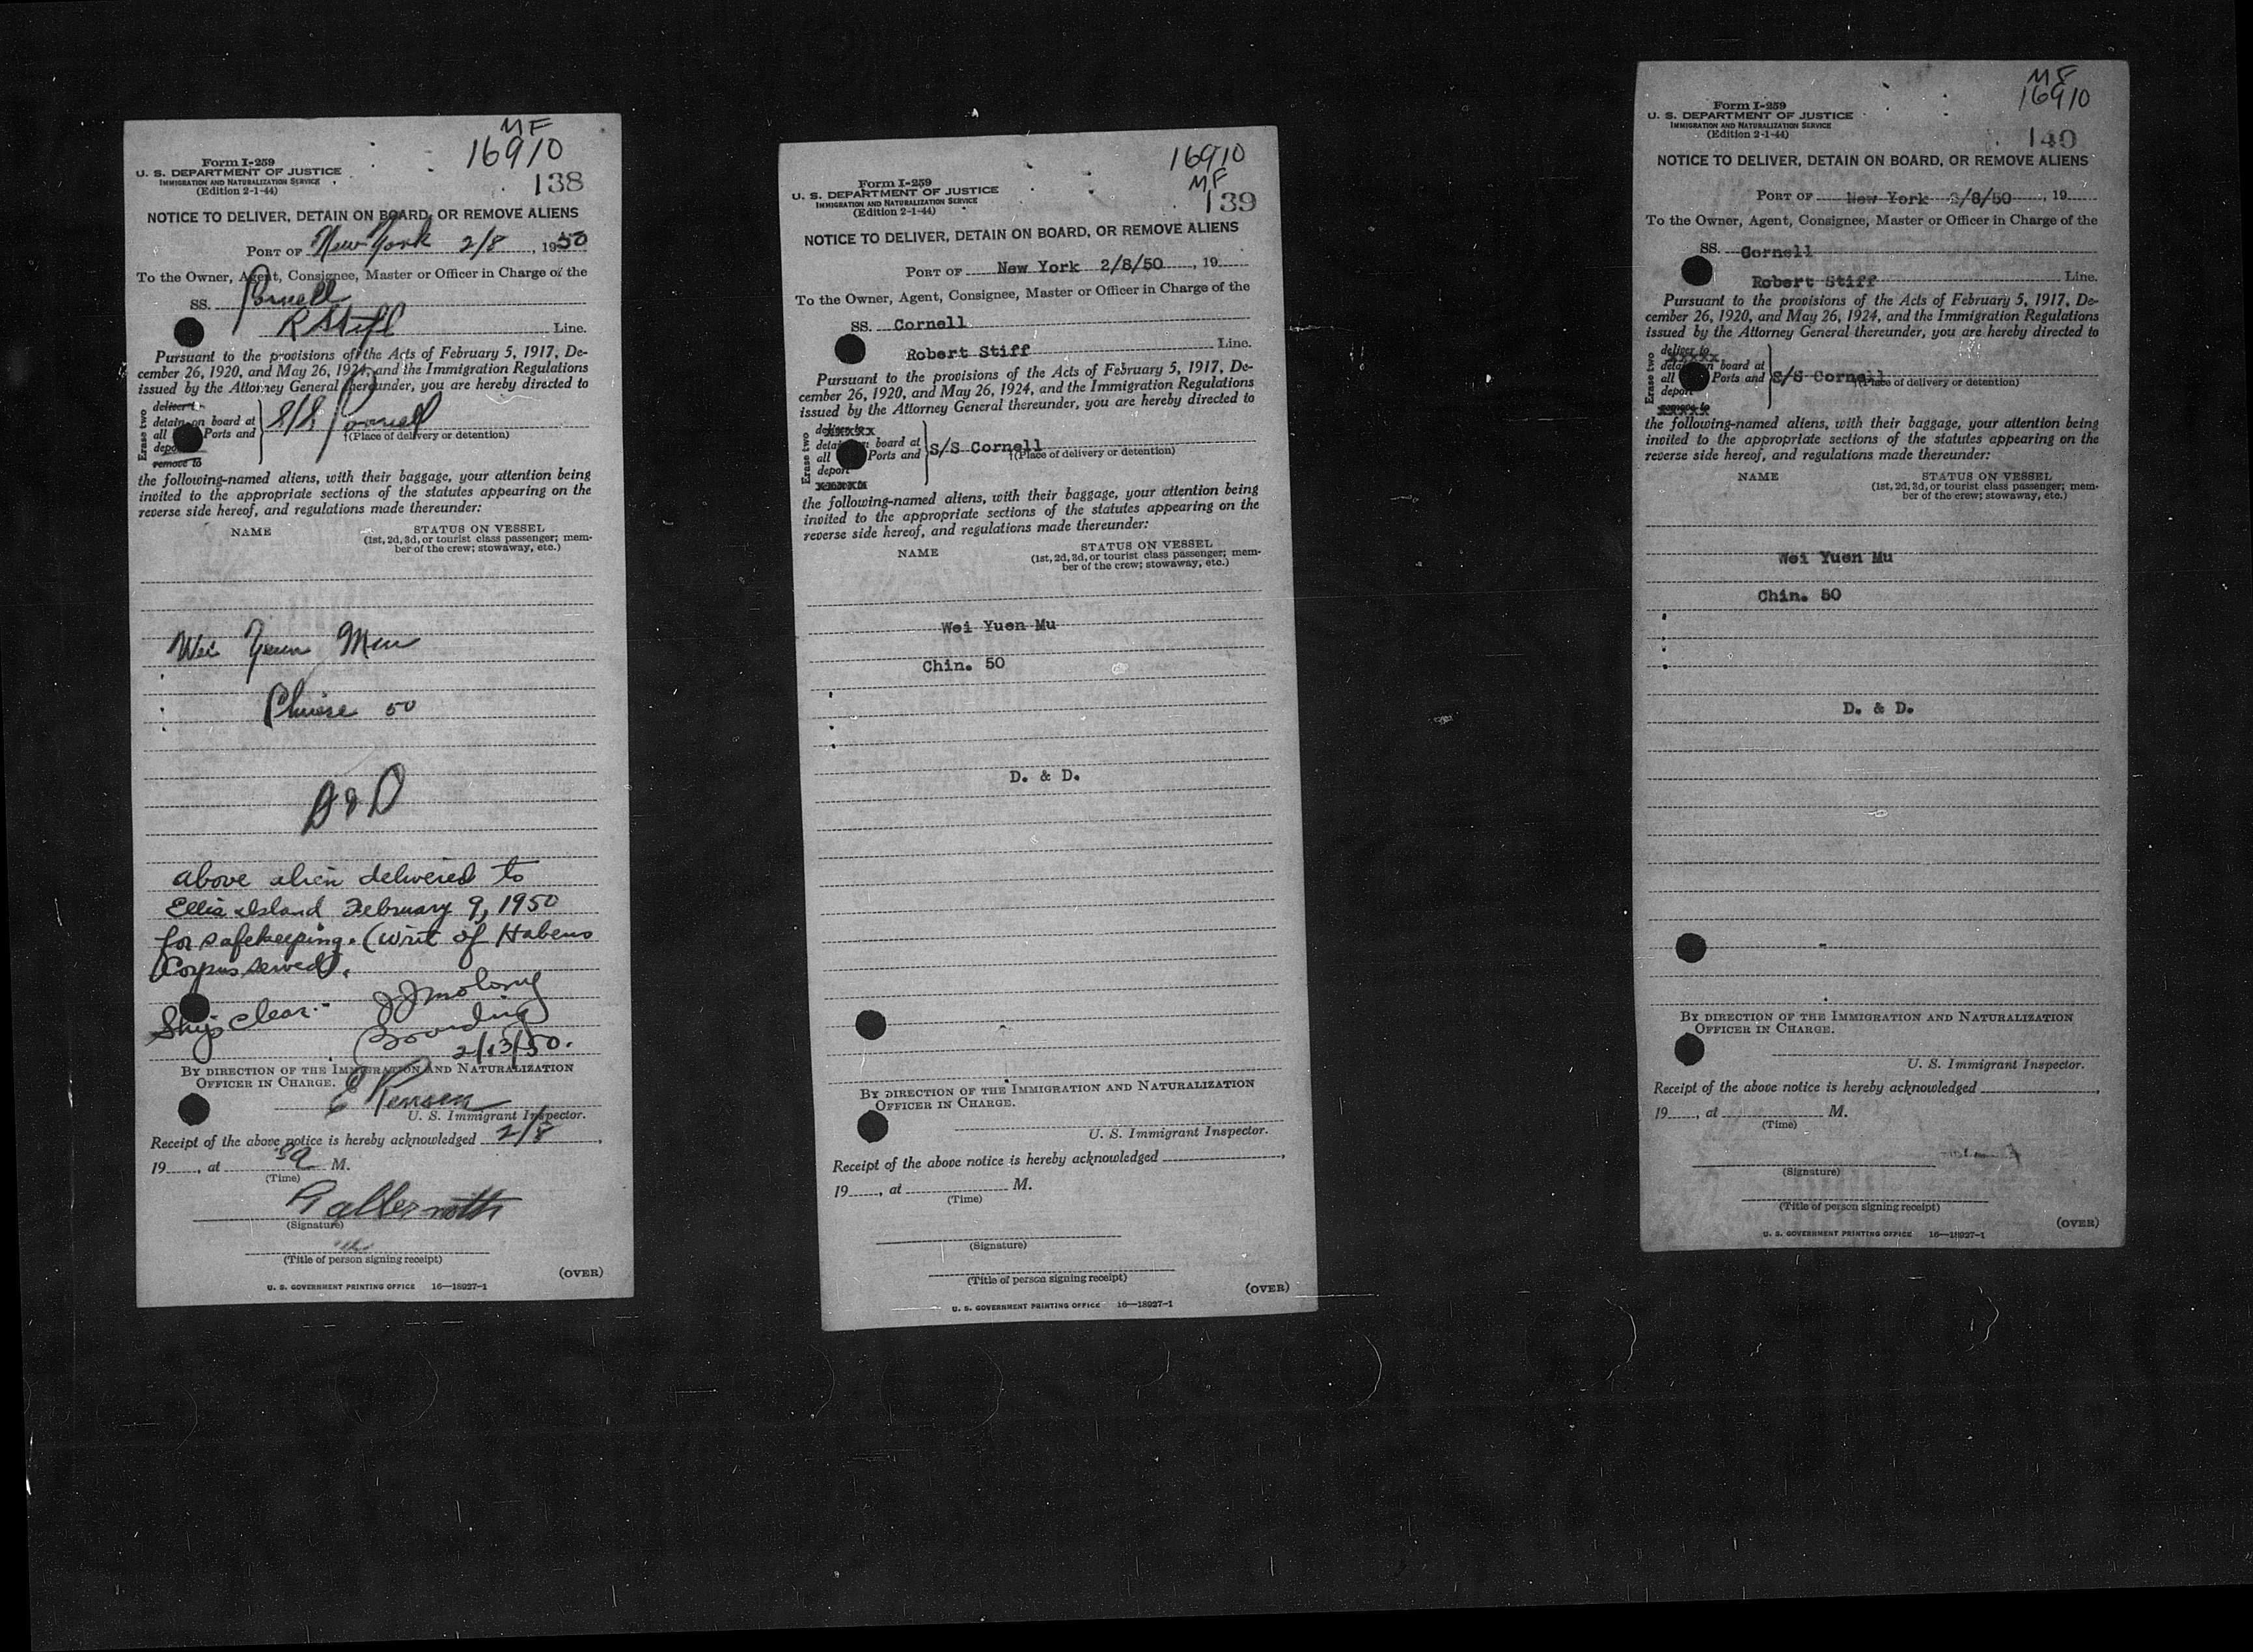 MF
16910
Form I-259
U. S. DEPARTMENT OF JUSTICE
IMMIGRATION AND NATURALIZATION SERVICE
(Edition 2-1-44)
138
NOTICE TO DELIVER, DETAIN ON BOARD, OR REMOVE ALIENS
PORT OF New York 2/8, 1950
To the Owner, Agent, Consignee, Master or Officer in Charge of the
SS. Cornell
R Stiff Line.
Pursuant to the provisions of the Acts of February 5, 1917, De-
cember 26, 1920, and May 26, 1924, and the Immigration Regulations
issued by the Attorney General thereunder, you are hereby directed to
Erase two
deliver to
detain on board at
all Ports and
deport
remove to
S/S Cornell
†(Place of delivery or detention)
the following-named aliens, with their baggage, your attention being
invited to the appropriate sections of the statutes appearing on the
reverse side hereof, and regulations made thereunder:
NAME STATUS ON VESSEL
(1st, 2d, 3d, or tourist class passenger; mem-
ber of the crew; stowaway, etc.)
Wei Yuen Mu
Chinese 50
D & D
above alien delivered to
Ellis Island February 9, 1950
for safekeeping. (Writ of Habeus
Corpus served).
Ship clear.
Boarding
2/13/50.
BY DIRECTION OF THE IMMIGRATION AND NATURALIZATION
OFFICER IN CHARGE.
U. S. Immigrant Inspector.
Receipt of the above notice is hereby acknowledged 2/8,
19, at 9a M.
(Time)
(Signature)
(Title of person signing receipt)
(OVER)
U. S. GOVERNMENT PRINTING OFFICE 16—18927-1
16910
MF
Form I-259
U. S. DEPARTMENT OF JUSTICE
IMMIGRATION AND NATURALIZATION SERVICE
(Edition 2-1-44)
139
NOTICE TO DELIVER, DETAIN ON BOARD, OR REMOVE ALIENS
PORT OF New York 2/8/50, 19
To the Owner, Agent, Consignee, Master or Officer in Charge of the
SS. Cornell
Robert Stiff Line.
Pursuant to the provisions of the Acts of February 5, 1917, De-
cember 26, 1920, and May 26, 1924, and the Immigration Regulations
issued by the Attorney General thereunder, you are hereby directed to
Erase two
deliver to
detain on board at
all Ports and
deport
S/S Cornell
†(Place of delivery or detention)
the following-named aliens, with their baggage, your attention being
invited to the appropriate sections of the statutes appearing on the
reverse side hereof, and regulations made thereunder:
NAME STATUS ON VESSEL
(1st, 2d, 3d, or tourist class passenger; mem-
ber of the crew; stowaway, etc.)
Wei Yuen Mu
Chin. 50
D. & D.
BY DIRECTION OF THE IMMIGRATION AND NATURALIZATION
OFFICER IN CHARGE.
U. S. Immigrant Inspector.
Receipt of the above notice is hereby acknowledged ,
19, at M.
(Time)
(Signature)
(Title of person signing receipt)
(OVER)
U. S. GOVERNMENT PRINTING OFFICE 16—18927-1
MF
16910
Form I-259
U. S. DEPARTMENT OF JUSTICE
IMMIGRATION AND NATURALIZATION SERVICE
(Edition 2-1-44)
140
NOTICE TO DELIVER, DETAIN ON BOARD, OR REMOVE ALIENS
PORT OF New York 2/8/50, 19
To the Owner, Agent, Consignee, Master or Officer in Charge of the
SS. Cornell
Robert Stiff Line.
Pursuant to the provisions of the Acts of February 5, 1917, De-
cember 26, 1920, and May 26, 1924, and the Immigration Regulations
issued by the Attorney General thereunder, you are hereby directed to
Erase two
deliver to
detain on board at
all Ports and
deport
remove to
S/S Cornell
†(Place of delivery or detention)
the following-named aliens, with their baggage, your attention being
invited to the appropriate sections of the statutes appearing on the
reverse side hereof, and regulations made thereunder:
NAME STATUS ON VESSEL
(1st, 2d, 3d, or tourist class passenger; mem-
ber of the crew; stowaway, etc.)
Wei Yuen Mu
Chin. 50
D. & D.
BY DIRECTION OF THE IMMIGRATION AND NATURALIZATION
OFFICER IN CHARGE.
U. S. Immigrant Inspector.
Receipt of the above notice is hereby acknowledged ,
19, at M.
(Time)
(Signature)
(Title of person signing receipt)
(OVER)
U. S. GOVERNMENT PRINTING OFFICE 16—18927-1